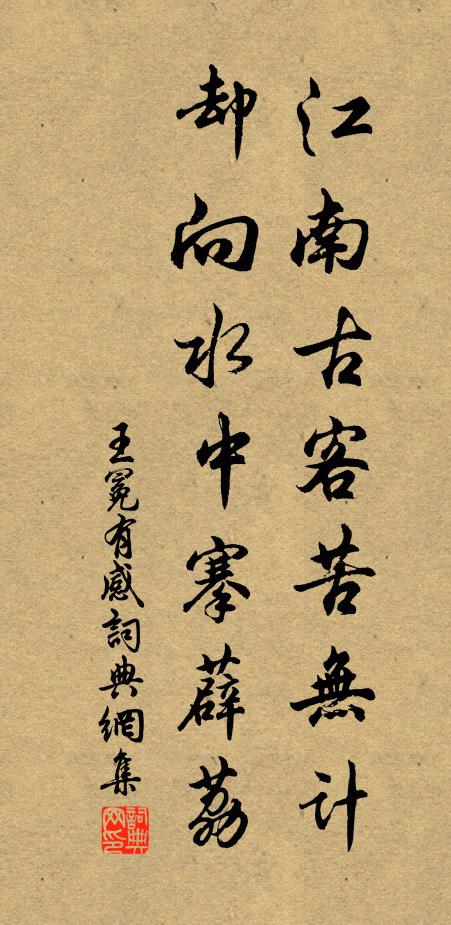 江南古客苦無計
却向水中搴薜荔
王冕有感詞典網集
詞典網印